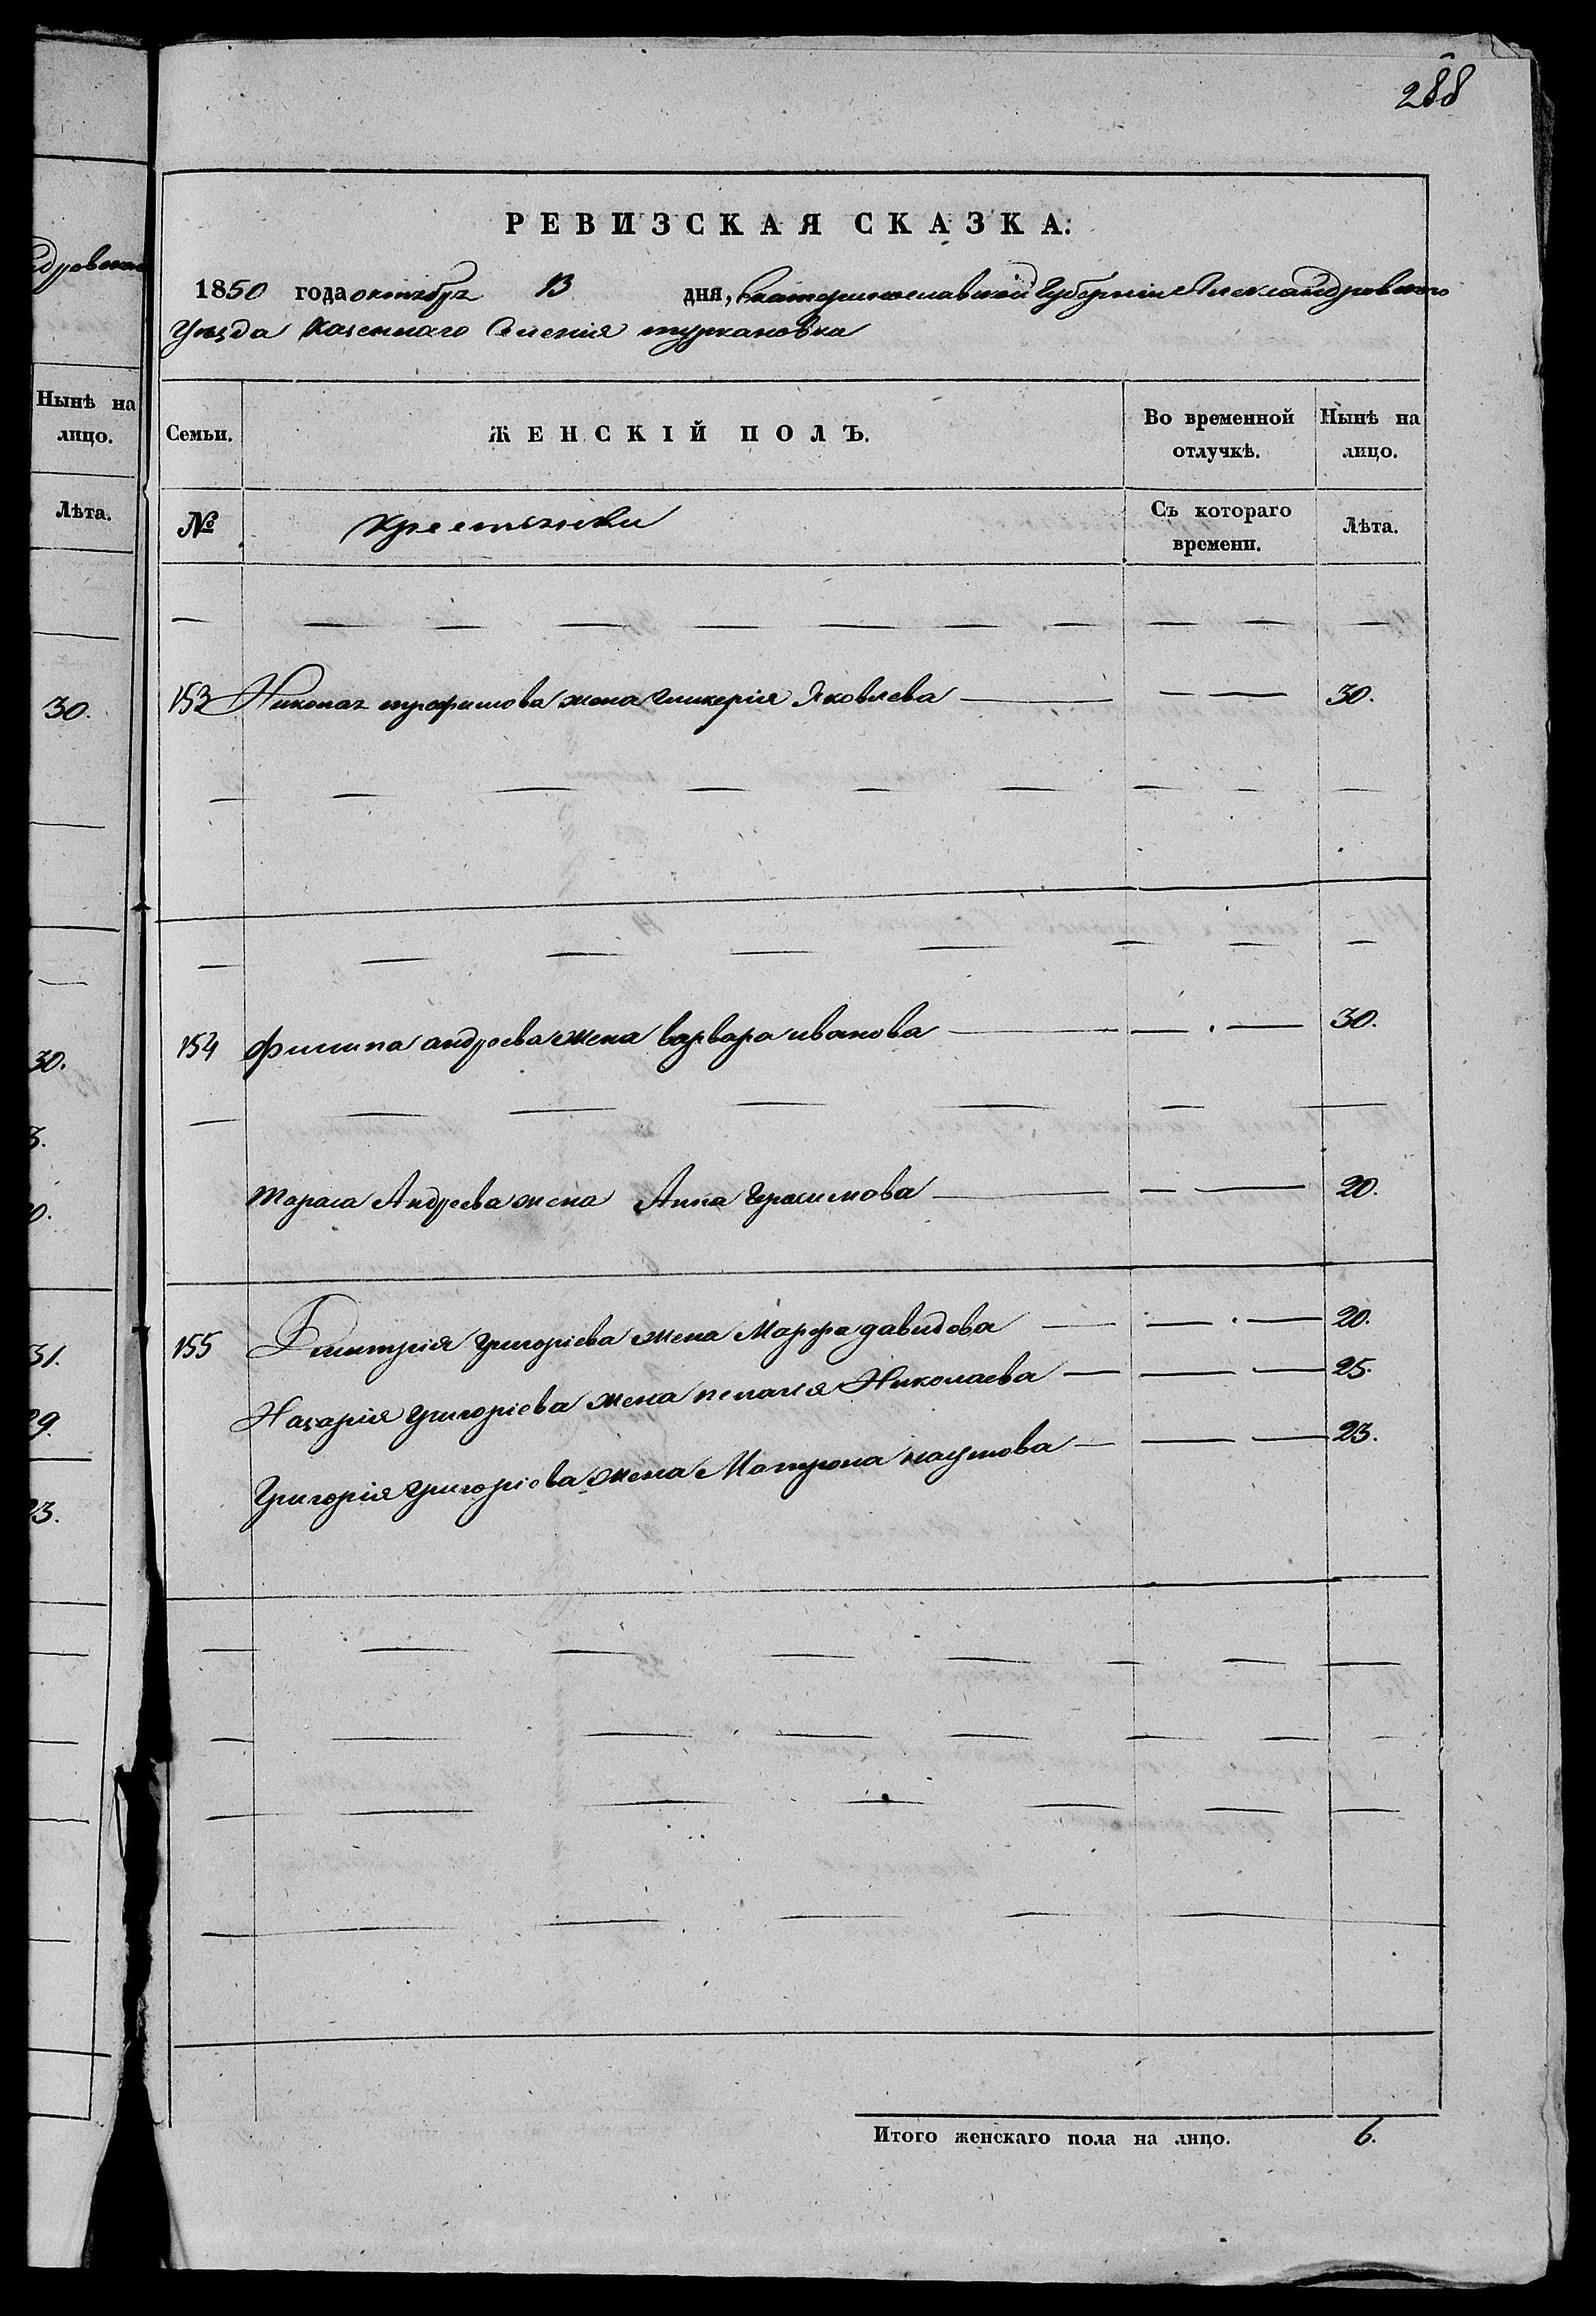 288
дровска
Нынѣ на
лицо.
Лѣта.
30.
30.
31.
29.
23.
РЕВИЗСКАЯ СКАЗКА:
1850 года октября 13 дня, Екатеринославской Губерніи Александровскаго
Уѣзда Казеннаго Селенія туркановка
Семьи. ЖЕНСКІЙ ПОЛЪ. Во временной отлучкѣ. Нынѣ на лицо.
№ крестьянки Съ котораго времени. Лѣта.
153 Николая трофимова жена гликерія Яковлева 30.
154 филипа андреева жена варвара иванова 30.
тараса Андреева жена Анна Герасимова 20.
155 Дмитрія григоріева жена Марфа давидова 20.
Назарія григоріева жена пелагея Николаева 25.
Григорія григоріева жена Матрона наумова 23.
Итого женскаго пола на лицо. 6.